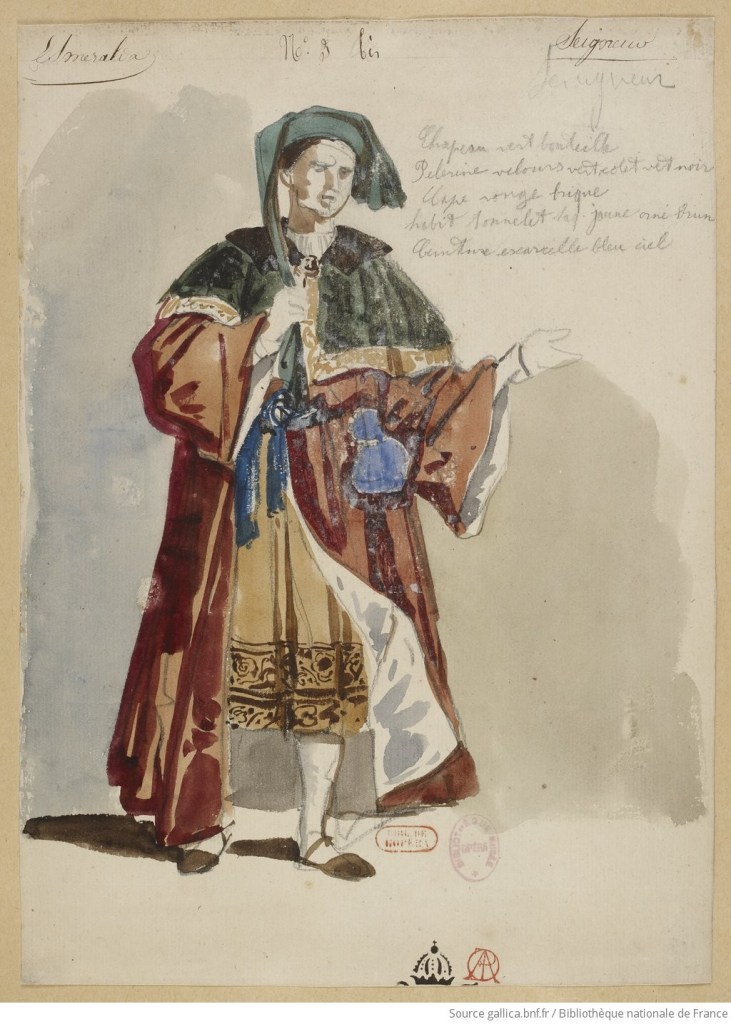 Esmeralda
No. 3 bis
Seigneur
Seigneur
Chapeau vert bouteille
Pelerine velours vert colet vert noir
Cape rouge brique
habit Tonnelet bas jaune orné brun
Ceinture escarcelle bleu ciel
BIBL. DE
L'OPÉRA
OPÉRA
Source gallica.bnf.fr / Bibliothèque nationale de France